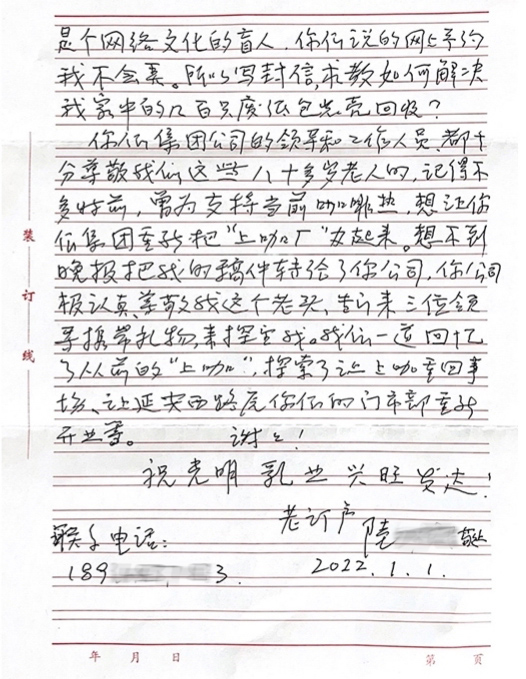 是个网络文化的盲人，你们说的网上予约
我不会弄。所以写封信，求教如何解决
我家中的几百只废纸包光壳回收？
你们集团公司的领导和工作人员，都十
分尊敬我们这些八十多岁老人的，记得不
多时前，曾为支持当前咖啡热，想让你
们集团重新把“上咖厂”办起来。想不到
晚报把我的稿件转给了你公司，你公司
极认真尊敬我这个老头，专门来三位领
导携带礼物，来探望我。我们一道回忆
了从前的“上咖”，探索了让上咖重回市
场、让延安西路原你们的门市部重新
开业等。 谢谢！
祝光明乳业兴旺发达！
老订户 陸 敬上
联系电话：
189 3.
2022.1.1.
装
订
线
年 月 日
第 页